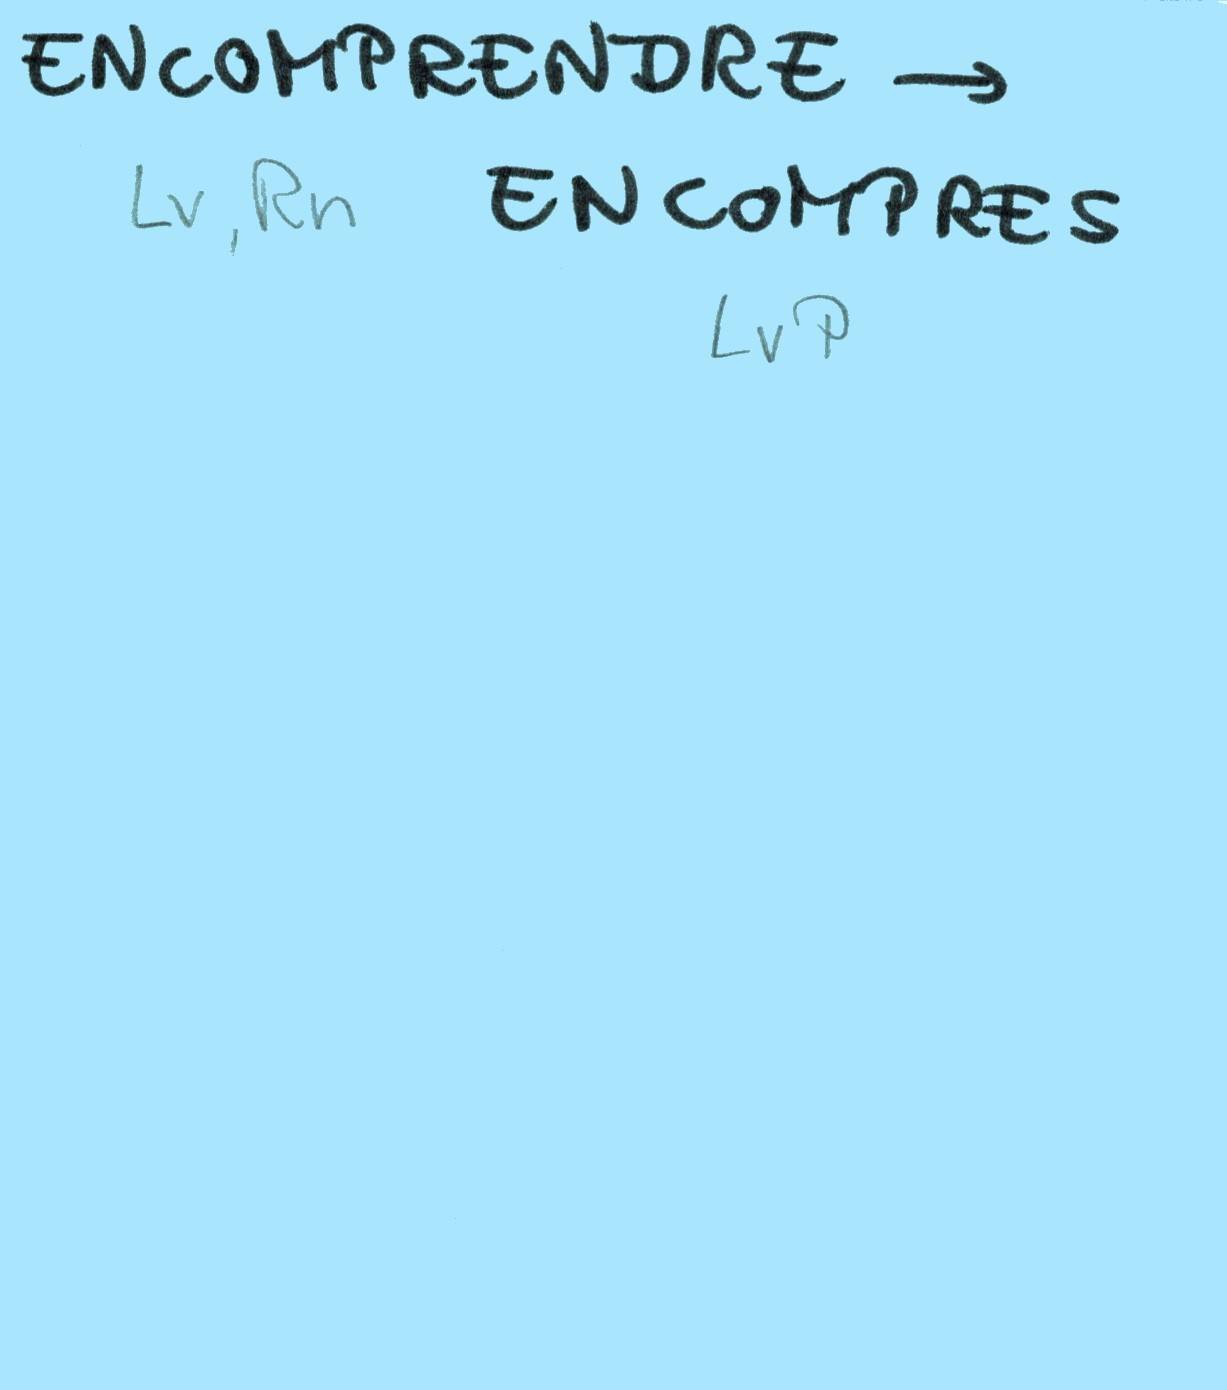 ENCOMPRENDRE →
Lv, Rn ENCOMPRES
LvP